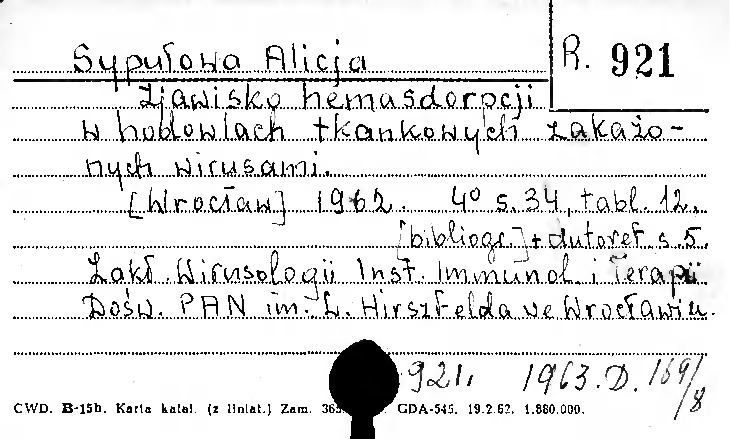 Sypułowa Alicja R. 921
Zjawisko hemasdorpcji
w hodowlach tkankowych zakażo-
nych wirusami.
[Wrocław] 1962. 4° s. 34, tabl. 12.
[bibliogr.] + Autoref. s. 5.
Zakł. Wirusologii Inst. Immunol. i Terapii
Dośw. PAN im. L. Hirszfelda we Wrocławiu.
921. 1963.D.169/8
CWD. B-15b. Karta katal. (z liniat.) Zam. GDA-545. 19.2.62. 1.880.000.